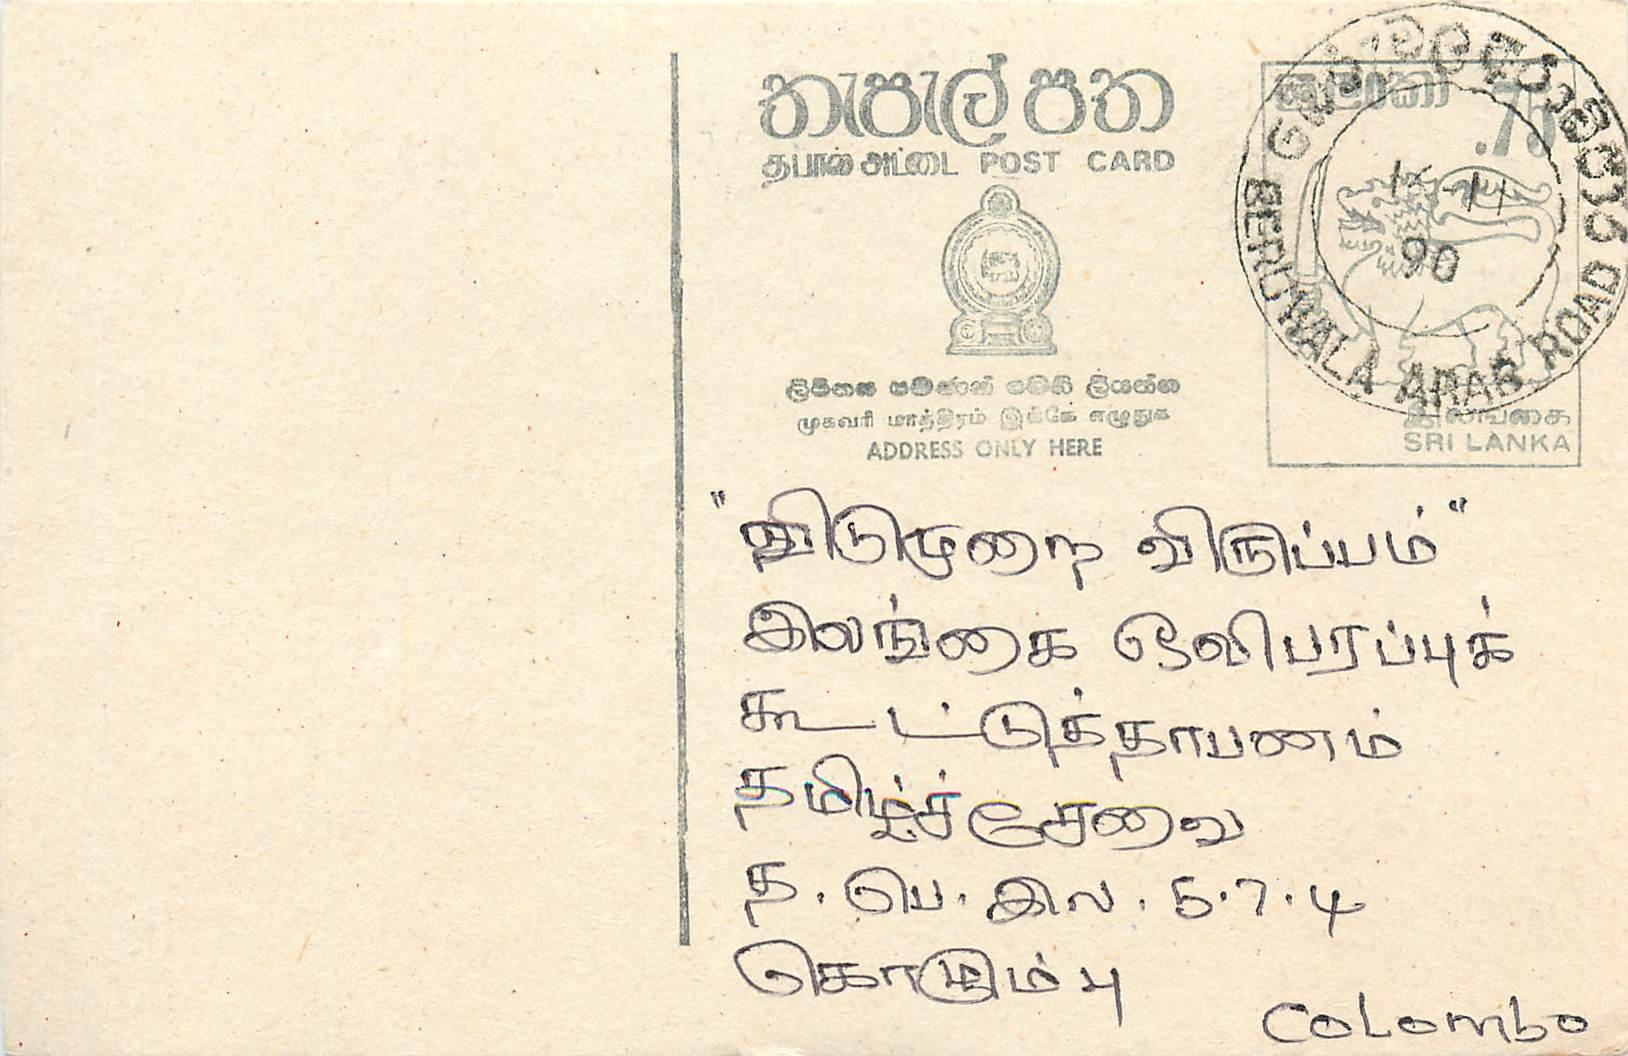 තැපැල් පත
தபால் அட்டை POST CARD
ලිපිනය පමණක් මෙහි ලියන්න
முகவரி மாத்திரம் இக்கே எழுதுக
ADDRESS ONLY HERE
ශ්‍රී ලංකා .75
இலங்கை
SRI LANKA
BERUWALA ARAB ROAD
IX 11
90
"விடுமுறை விருப்பம்"
இலங்கை ஒலிபரப்புக்
கூட்டுத்தாபனம்
தமிழ்ச்சேவை
த. பெ. இல. 5.7.4
கொழும்பு
Colombo